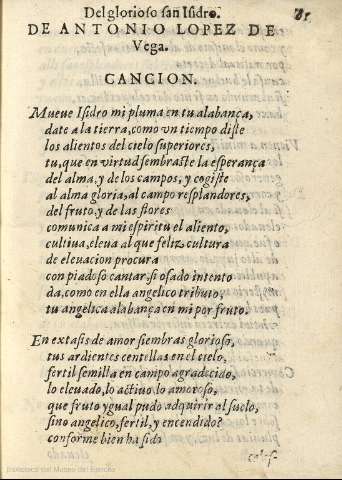 Del glorioso san Isidro. 81
DE ANTONIO LOPEZ DE
Vega.
CANCION.
Mueue Isidro mi pluma en tu alabança,
date a la tierra, como vn tiempo diste
los alientos del cielo superiores,
tu, que en virtud sembraste la esperança
del alma, y de los campos, y cogiste
al alma gloria, al campo resplandores,
del fruto, y de las flores
comunica a mi espiritu el aliento,
cultiua, eleua al que feliz cultura
de eleuacion procura
con piadoso cantar, si osado intento
da, como en ella angelico tributo,
tu angelica alabança en mi por fruto.
En extasis de amor siembras glorioso,
tus ardientes centellas en el cielo,
fertil semilla en campo agradecido,
lo eleuado, lo actiuo, lo amoroso,
que fruto ygual pudo adquirir al suelo,
sino angelico, fertil, y encendido?
conforme bien ha sido
Biblioteca del Museo del Ejército